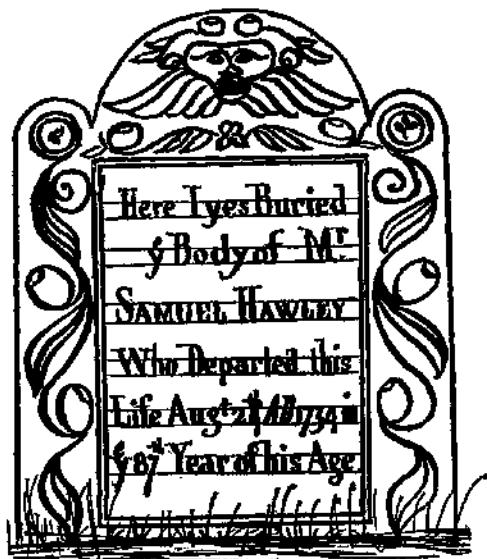 Here Lyes Buried
yͤ Body of Mͬ
SAMUEL HAWLEY
Who Departed this
Life Augˢᵗ AD 1734 in
yͤ 87ᵗʰ Year of his Age